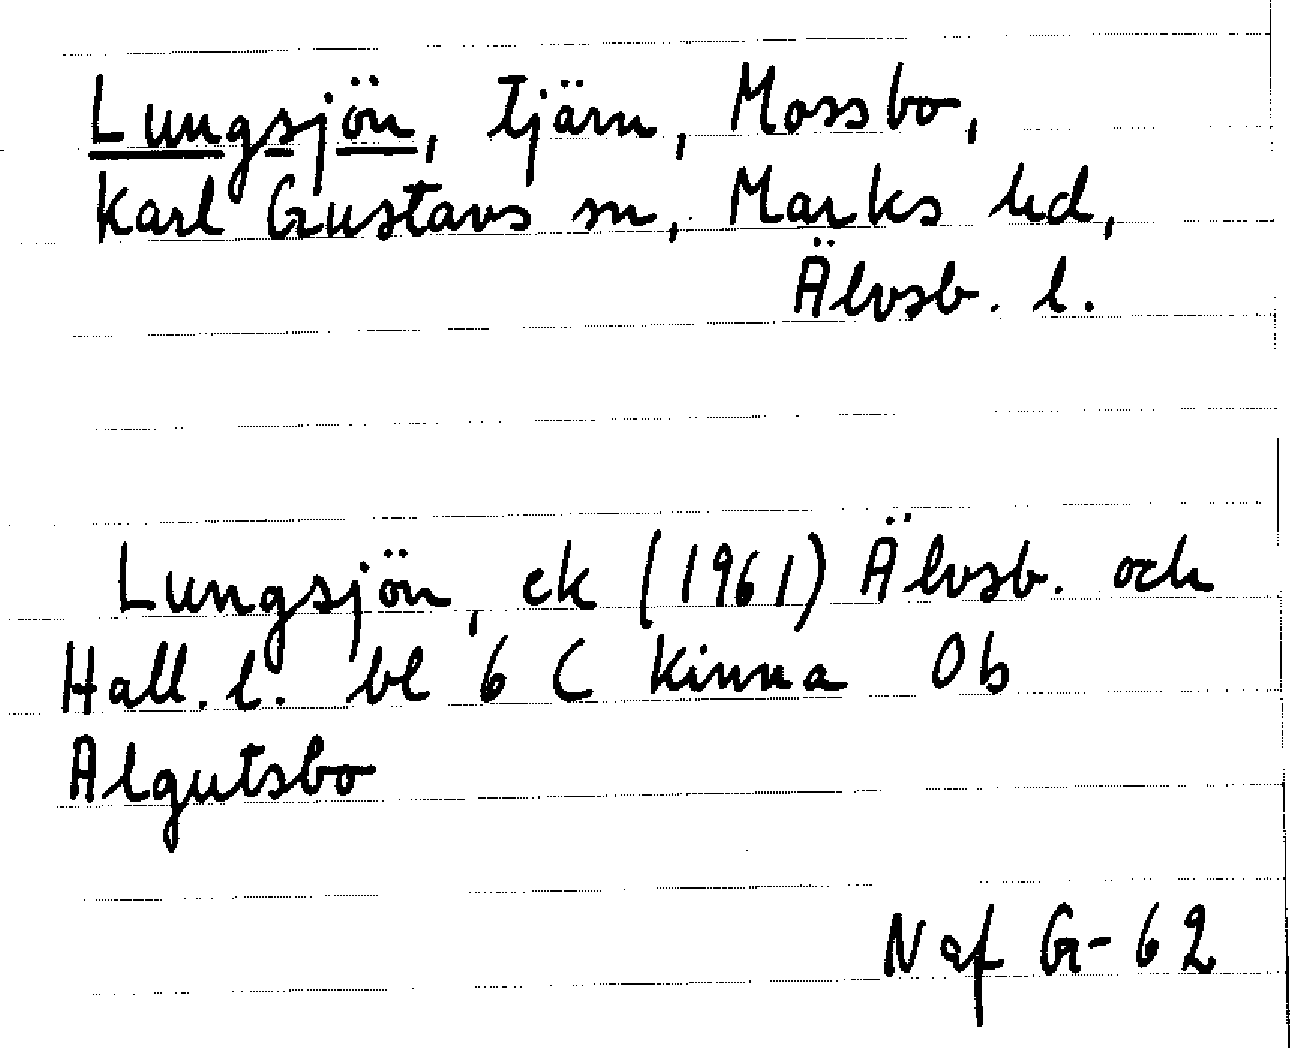 Lungsjön, tjärn, Mossbo,
Karl Gustavs sn, Marks hd,
Älvsb. l.
Lungsjön, ek (1961) Älvsb. och
Hall. l. bl 6 C Kinna 0b
Algutsbo
Naf G-62